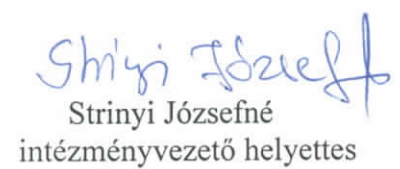 Strinyi Józsefné
Strinyi Józsefné
intézményvezető helyettes